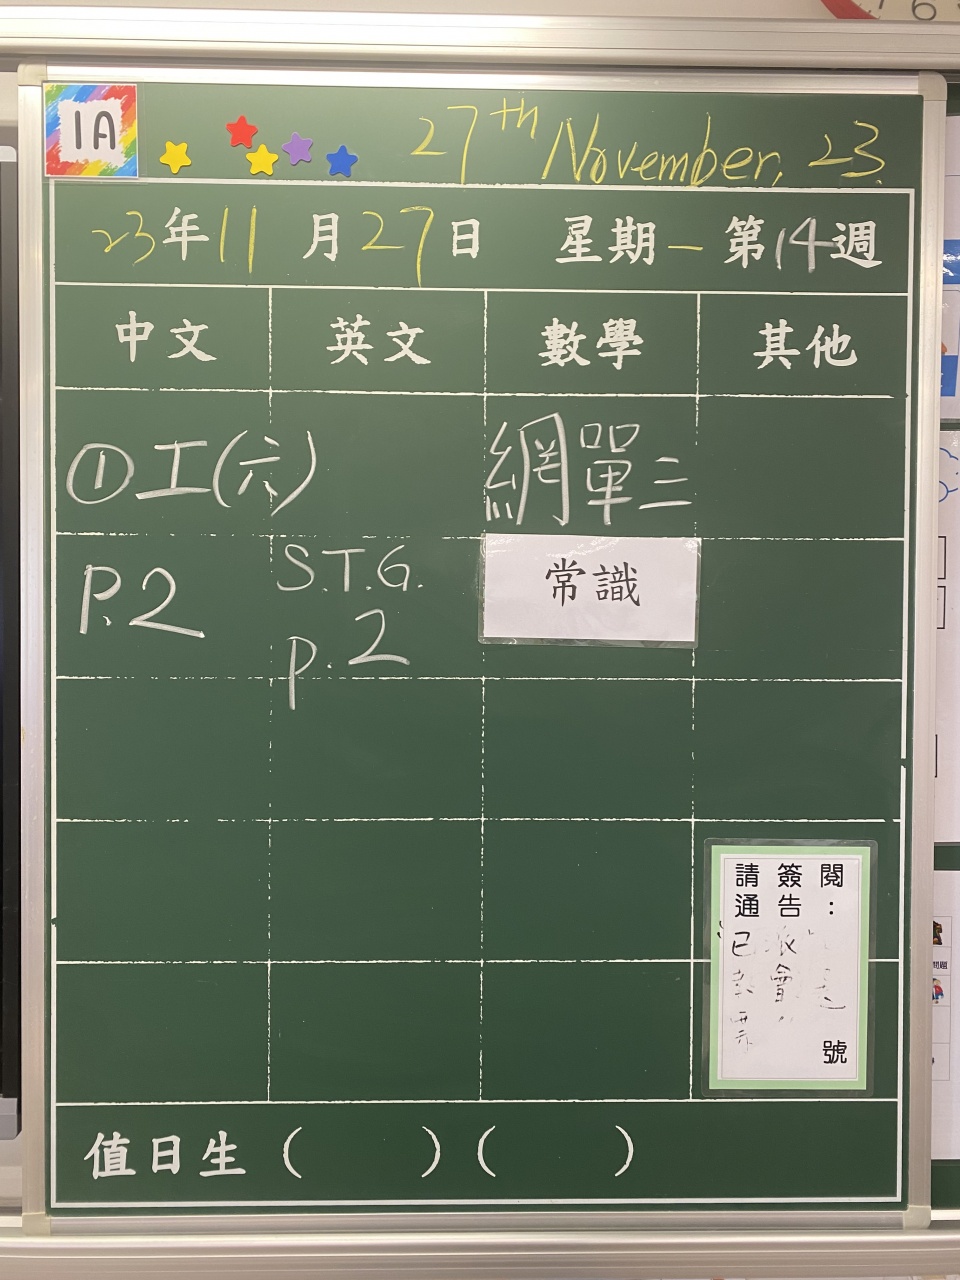 1A
27th November, 23.
23年11月27日 星期一 第14週
中文 英文 數學 其他
①工(六) 網單三
P.2 S.T.G. 常識
p.2
請簽閱:
通告
已
會
號
值日生 ( ) ( )